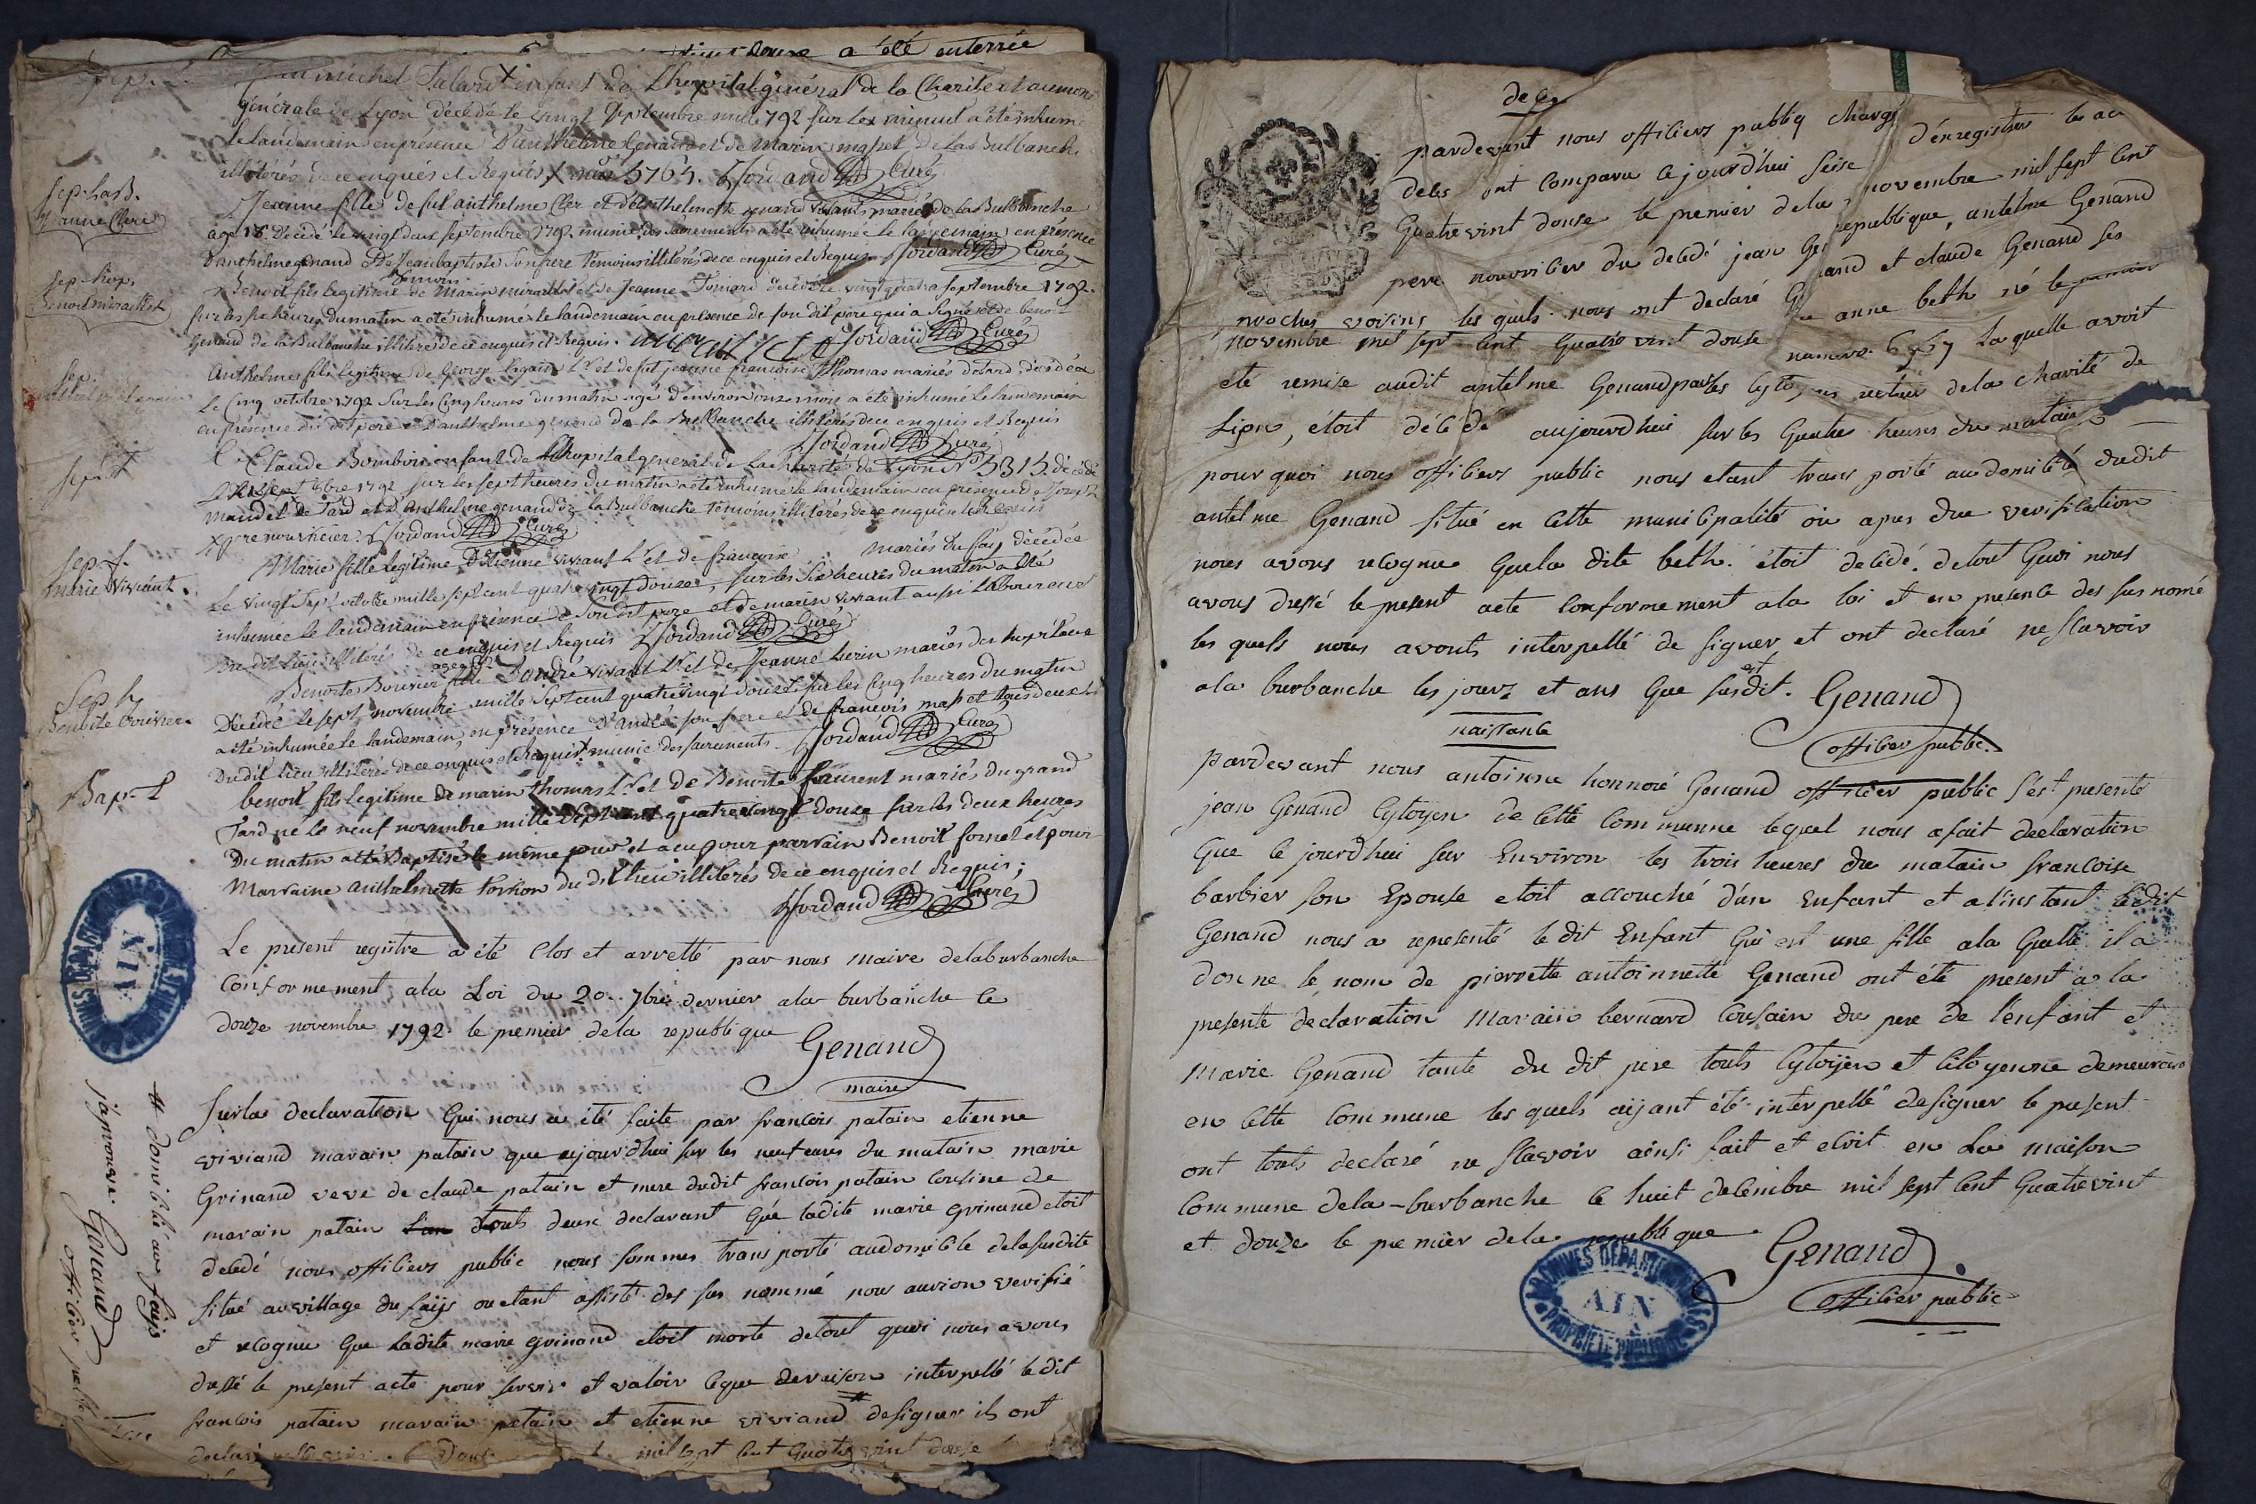 vint douze a été enterrée
Jean michel Salard enfant de L'hopital général de la Charité et aumone
générale de Lyon décédé le vingt Septembre mille 792 sur les minuit a été inhumé
le landemain en présence D'anthelme Genand et de Marin massel De La Bulbanche
illitérés de ce enquis et Requis 5765. Jordand Curé
Sep. LaB.
Jeanne Clerc
Jeanne fille de fut anthelme Cler et d'anthelmette genand vivants mariés de La Bulbanche
age 18. Décédé le vingt deux Septembre 1792 munie des sacrements a été inhumée le landemain en présence
D'anthelme genand et de Jean baptiste son frere témoins illitérés de ce enquis et Requis Jordand Curé
Sep. hop.
Benoit miraillet
Benoit fils legitime de Marin miraillet et de Jeanne Tomain décédé le vingt quatre septembre 1792.
sur les heures du matin a été inhumé le landemain en présence de son dit père qui a signé et de benoit
genand de la Bulbanche illitéré de ce enquis et Requis. Miraillet Jordand Curé
Sep.
Anthelme fils legitime de George Legain Lr et de fut jeanne francoise Thomas mariés de tard décédé
Le Cinq octobre 1792 Sur les Cinq heures du matin agé d'environ onze mois a été inhumé le landemain
en présence du dit pere et D'anthelme genand de la Bulbanche illitérés de ce enquis et Requis
Jordand Curé
Sep. t
Claude Bombois enfant de L'hopital general de La charité de Lyon No 5315. décédé
Le sept 8bre 1792 sur les sept heures du matin a été inhumé le landemain en présence de Joseph
Mandel de Tard et D'Anthelme genand de La Bulbanche Témoins illitérés de ce enquis et Requis
pere nourricier. Jordand Curé
Sep. f.
Marie Vivant.
Marie fille legitime D'Etienne vivant Lr et de francoise mariés du fay décédée
Le vingt sept octobre mille sept cent quatre vingt douze, sur les Six heures du matin a été
inhumée le landemain en présence de son dit pere et de marin vivant aussi laboureur
du dit Lieu illitérés de ce enquis et Requis Jordand Curé
Sep h.
Benoite Bouvier
Benoite Bouvier fille D'andré vivant Lr et de Jeanne herin mariés du hopitaux
Décédée le sept novembre mille Sept cent quatre vingt douze sur les Cinq heures du matin
a été inhumée le landemain, en présence D'André son frere et de francois massot tous deux
du dit lieu illitérés de ce enquis et Requis munie des sacrements. Jordand Curé
Bap. t
benoit fils legitime de marin thomas Lr et de Benoite Laurent mariés du grand
Tard né le neuf novembre mille Sept cent quatre vingt douze sur les deux heures
Du matin a été Baptisé le même jour et a eu pour parrain Benoit fornet et pour
Marraine anthelmette tornion du dit lieu illitérés de ce enquis et Requis;
Jordand Curé
Le present registre a été clos et arretté par nous maire de la burbanche
Conformement ala Loi du 20. 7bre dernier ala burbanche le
douze novembre 1792. le premier de la republique
Genand
maire
Sur la declaration Qui nous a été faite par francois patain etienne
viviand marain patain que aujourdhui sur les neuf eures du matain marie
Grinand veve de claude patain et mere dudit francois patain cousine de
marain patain touts deux declarant Que ladite marie grinand etoit
decedé nous officiers public nous sommes transporté au domicile de la susdite
situé au village du faijs ou etant assisté des sus nommé nous avrion verifié
et recognu Que ladite marie grinand etoit morte de tout quoi nous avons
dressé le present acte pour servir et valoir ceque de raison interpellé le dit
francois patain marain patain et etienne viviand # de signer ils ont
declaré mil sept cent Quatre vint douze
# domicilié au faijs
japrouve. Genand
officier public
deces
pardevant nous officiers publiq chargé d'enregistrer les ac
deces ont comparu ce jourd'hui seise novembre mil sept cent
Quatrevint douse le premier de la republique, antelme Genand
pere nourricier du decedé jean Genand et claude Genand ses
proches voisins les quels nous ont declaré Que anne beth né le premier
novembre mil sept cent quatre vint douse numero 6967 Laquelle avoit
eté remise audit antelme Genand par les Cytoyens recteur de la charité de
Lion, étoit décédé aujourdhui sur les Quatre heures du matain
pourquoi nous officiers public nous etant transporté au domicile dudit
antelme Genand situé en cette municipalité ou apres due verification
nous avons recognu Que la dite beth. étoit décédé. de tout Quoi nous
avons dressé le present acte conformement ala loi et en presence des sus nomé
les quels nous avonts interpellé de signer et ont declaré ne scavoir
ala burbanche les jours et ans que susdit.
Genand
officier public.
naissance
pardevant nous antoinne honnoré Genand officier public s'est presenté
jean Genand Cytoyen de cette commune lequel nous a fait declaration
Que ce jourdhui sur Environ les trois heures du matain francoise
barbier son Epouse etoit accouché d'un Enfant et a l'instant ledit
Genand nous a representé le dit Enfant Qui est une fille ala Quelle il a
donne le nom de pierrette antoinnette Genand ont été present a la
presente declaration Marain bernard Cousain du pere de l'enfant et
Marie Genand tante du dit pere touts Cytoijen et citoyenne demeurant
en cette commune les quels aijant été interpellé de signer le present
ont touts declaré ne scavoir ainsi fait et ecrit en La maison
commune dela-burbanche le huit decembre mil sept cent Quatrevint
et douze le premier de la republique
Genand
officier public
ARCHIVES DÉPARTEMENTALES
AIN
PROPRIÉTÉ PUBLIQUE